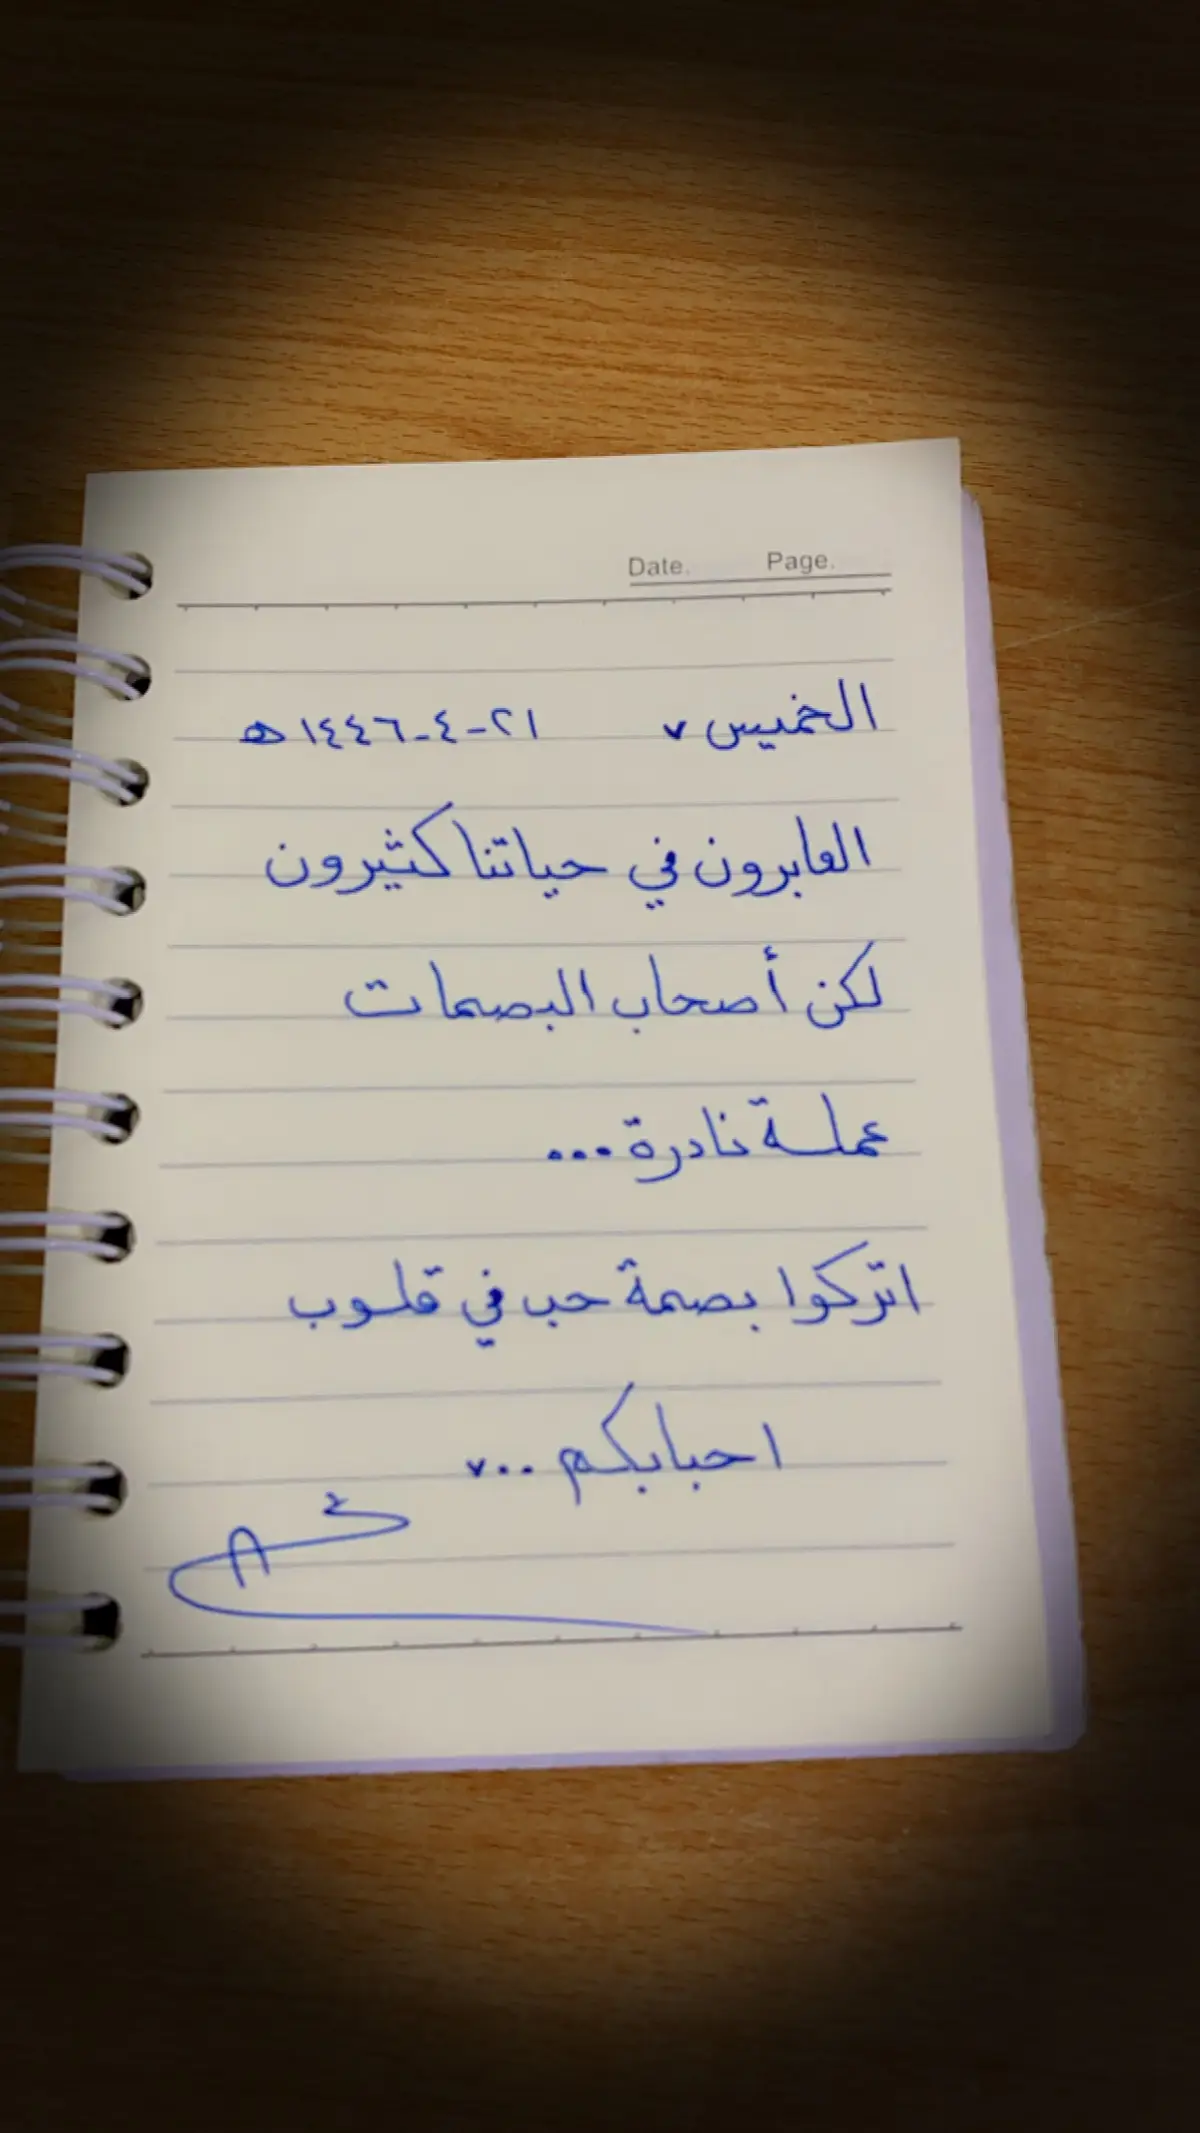 Date. Page.
الخميس ٢١-٤-١٤٤٦ه
العابرون في حياتنا كثيرون
لكن أصحاب البصمات
عملة نادرة ...
اتركوا بصمة حب في قلوب
احبابكم ..